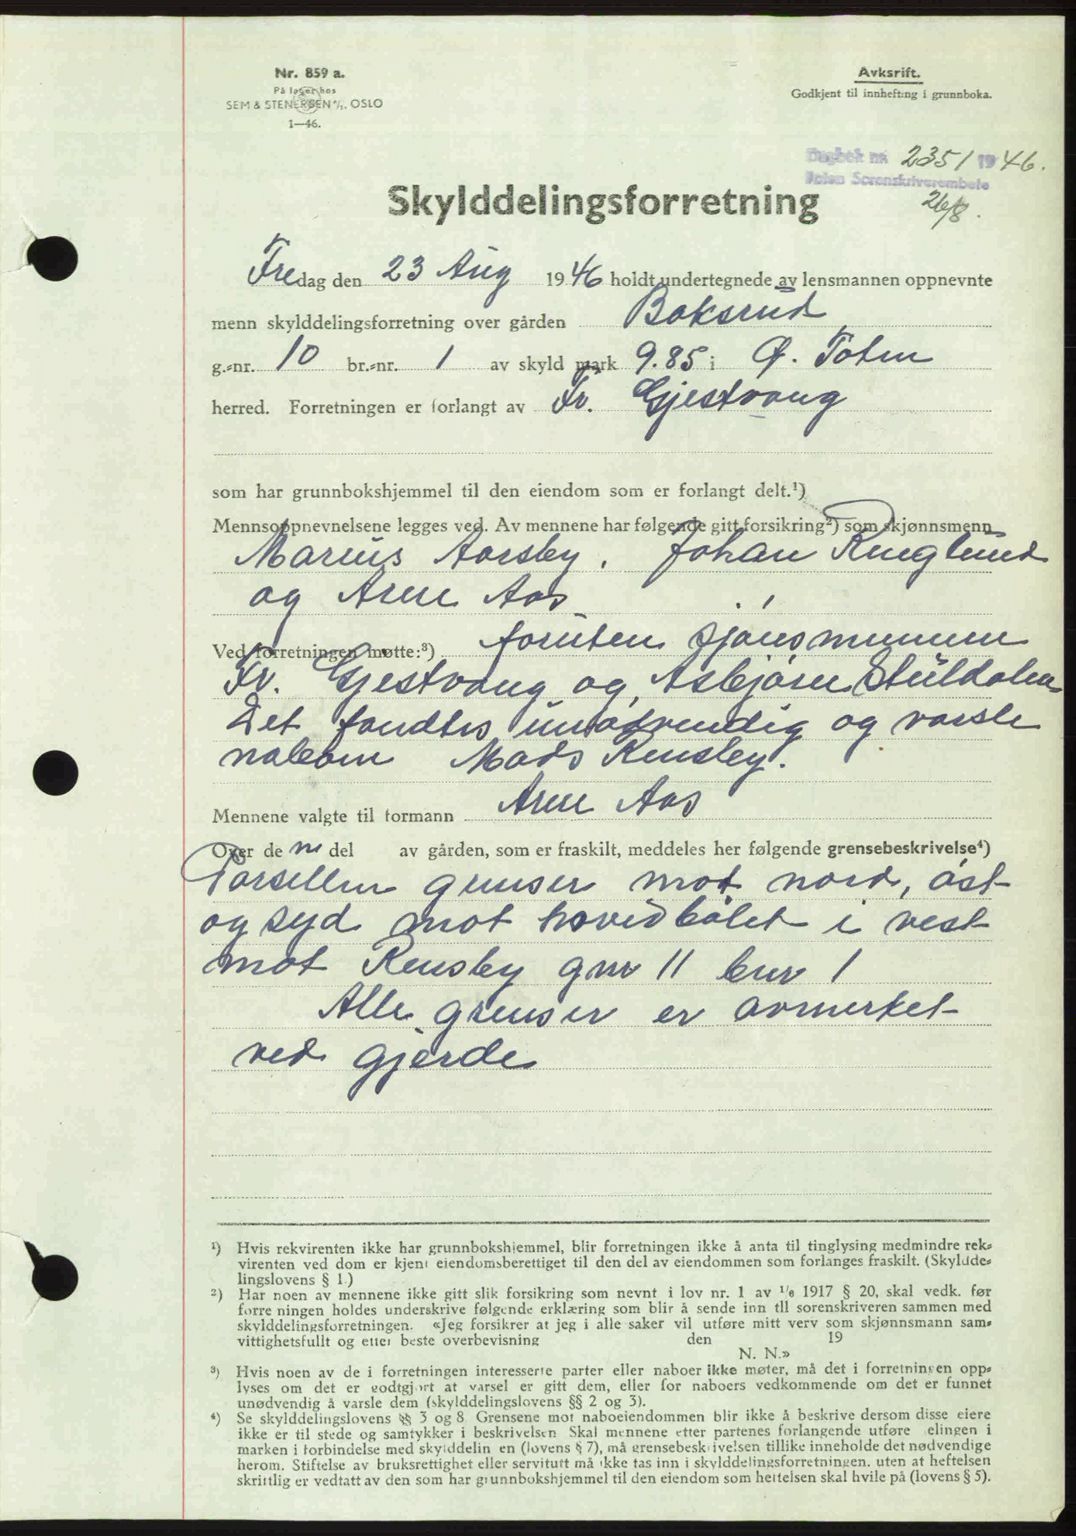 Nr. 859 a.
På lager hos
SEM & STENERSEN A/S, OSLO
1—46.
Avksrift.
Godkjent til innhefting i grunnboka.
Dagbok nr. 2351 1946.
Toten Sorenskriverembete
26/8.
Skylddelingsforretning
Fredag den 23 Aug 1946 holdt undertegnede av lensmannen oppnevnte
menn skylddelingsforretning over gården Boksrud
g.-nr. 10 br.-nr. 1 av skyld mark 9.85 i Ø. Toten
herred. Forretningen er forlangt av Fr. Gjestvang
som har grunnbokshjemmel til den eiendom som er forlangt delt.¹)
Mennsoppnevnelsene legges ved. Av mennene har følgende gitt forsikring²) som skjønnsmenn
Marius Aorsby, Johan Ringlund
og Arne Aas
Ved forretningen møtte:³) foruten sjønsmennene
Fr. Gjestvang og Asbjørn Stuldalen
Det fandtes unødvendig og varsle
naboen Mads Rensby.
Mennene valgte til formann Arne Aas
Over de n del av gården, som er fraskilt, meddeles her følgende grensebeskrivelse⁴)
Parsellen grenser mot nord, øst
og syd mot hovedbølet i vest
mot Rensby gnr 11 bnr 1
Alle grenser er avmerket
ved gjerde
¹) Hvis rekvirenten ikke har grunnbokshjemmel, blir forretningen ikke å anta til tinglysing medmindre rek-
virenten ved dom er kjent eiendomsberettiget til den del av eiendommen som forlanges fraskilt. (Skyldde-
lingslovens § 1.)
²) Har noen av mennene ikke gitt slik forsikring som nevnt i lov nr. 1 av 1/6 1917 § 20, skal vedk. før
forretningen holdes underskrive følgende erklæring som blir å sende inn til sorenskriveren sammen med
skylddelingsforretningen. «Jeg forsikrer at jeg i alle saker vil utføre mitt verv som skjønnsmann sam-
vittighetsfullt og etter beste overbevisning den 19
N. N.»
³) Hvis noen av de i forretningen interesserte parter eller naboer ikke møter, må det i forretningen opp-
lyses om det er godtgjort at varsel er gitt dem, eller for naboers vedkommende om det er funnet
unødvendig å varsle dem (skylddelingslovens §§ 2 og 3).
⁴) Se skylddelingslovens §§ 3 og 8. Grensene mot naboeiendommen blir ikke å beskrive dersom disse eiere
ikke er til stede og samtykker i beskrivelsen. Skal mennene etter partenes forlangende utføre delingen i
marken i forbindelse med skylddelingen (lovens § 7), må grensebeskrivelsen tillike inneholde det nødvendige
herom. Stiftelse av bruksrettighet eller servitutt må ikke tas inn i skylddelingsforretningen, uten at heftelsen
skriftlig er vedtatt av den som har grunnbokshjemmel til den eiendom som heftelsen skal hvile på (lovens § 5).